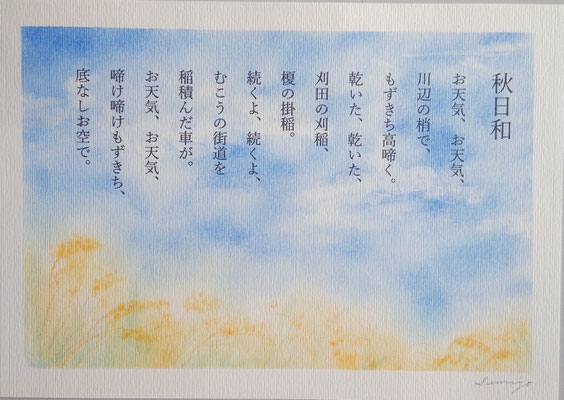 秋日和
お天気、お天気、
川辺の梢で、
もずきち高啼く。
乾いた、乾いた、
刈田の刈稲、
榎の掛稲。
続くよ、続くよ、
むこうの街道を
稲積んだ車が。
お天気、お天気、
啼け啼けもずきち、
底なしお空で。
Sumijo